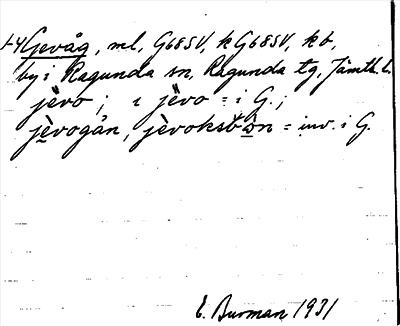 1-4 Gevåg, ml, G68SV, k G68SV, kb,
by i Ragunda sn, Ragunda tg, Jämtl. l.
jèvo; i jèvo = i G.;
jèvogån, = inv. i G.
E. Burman 1931